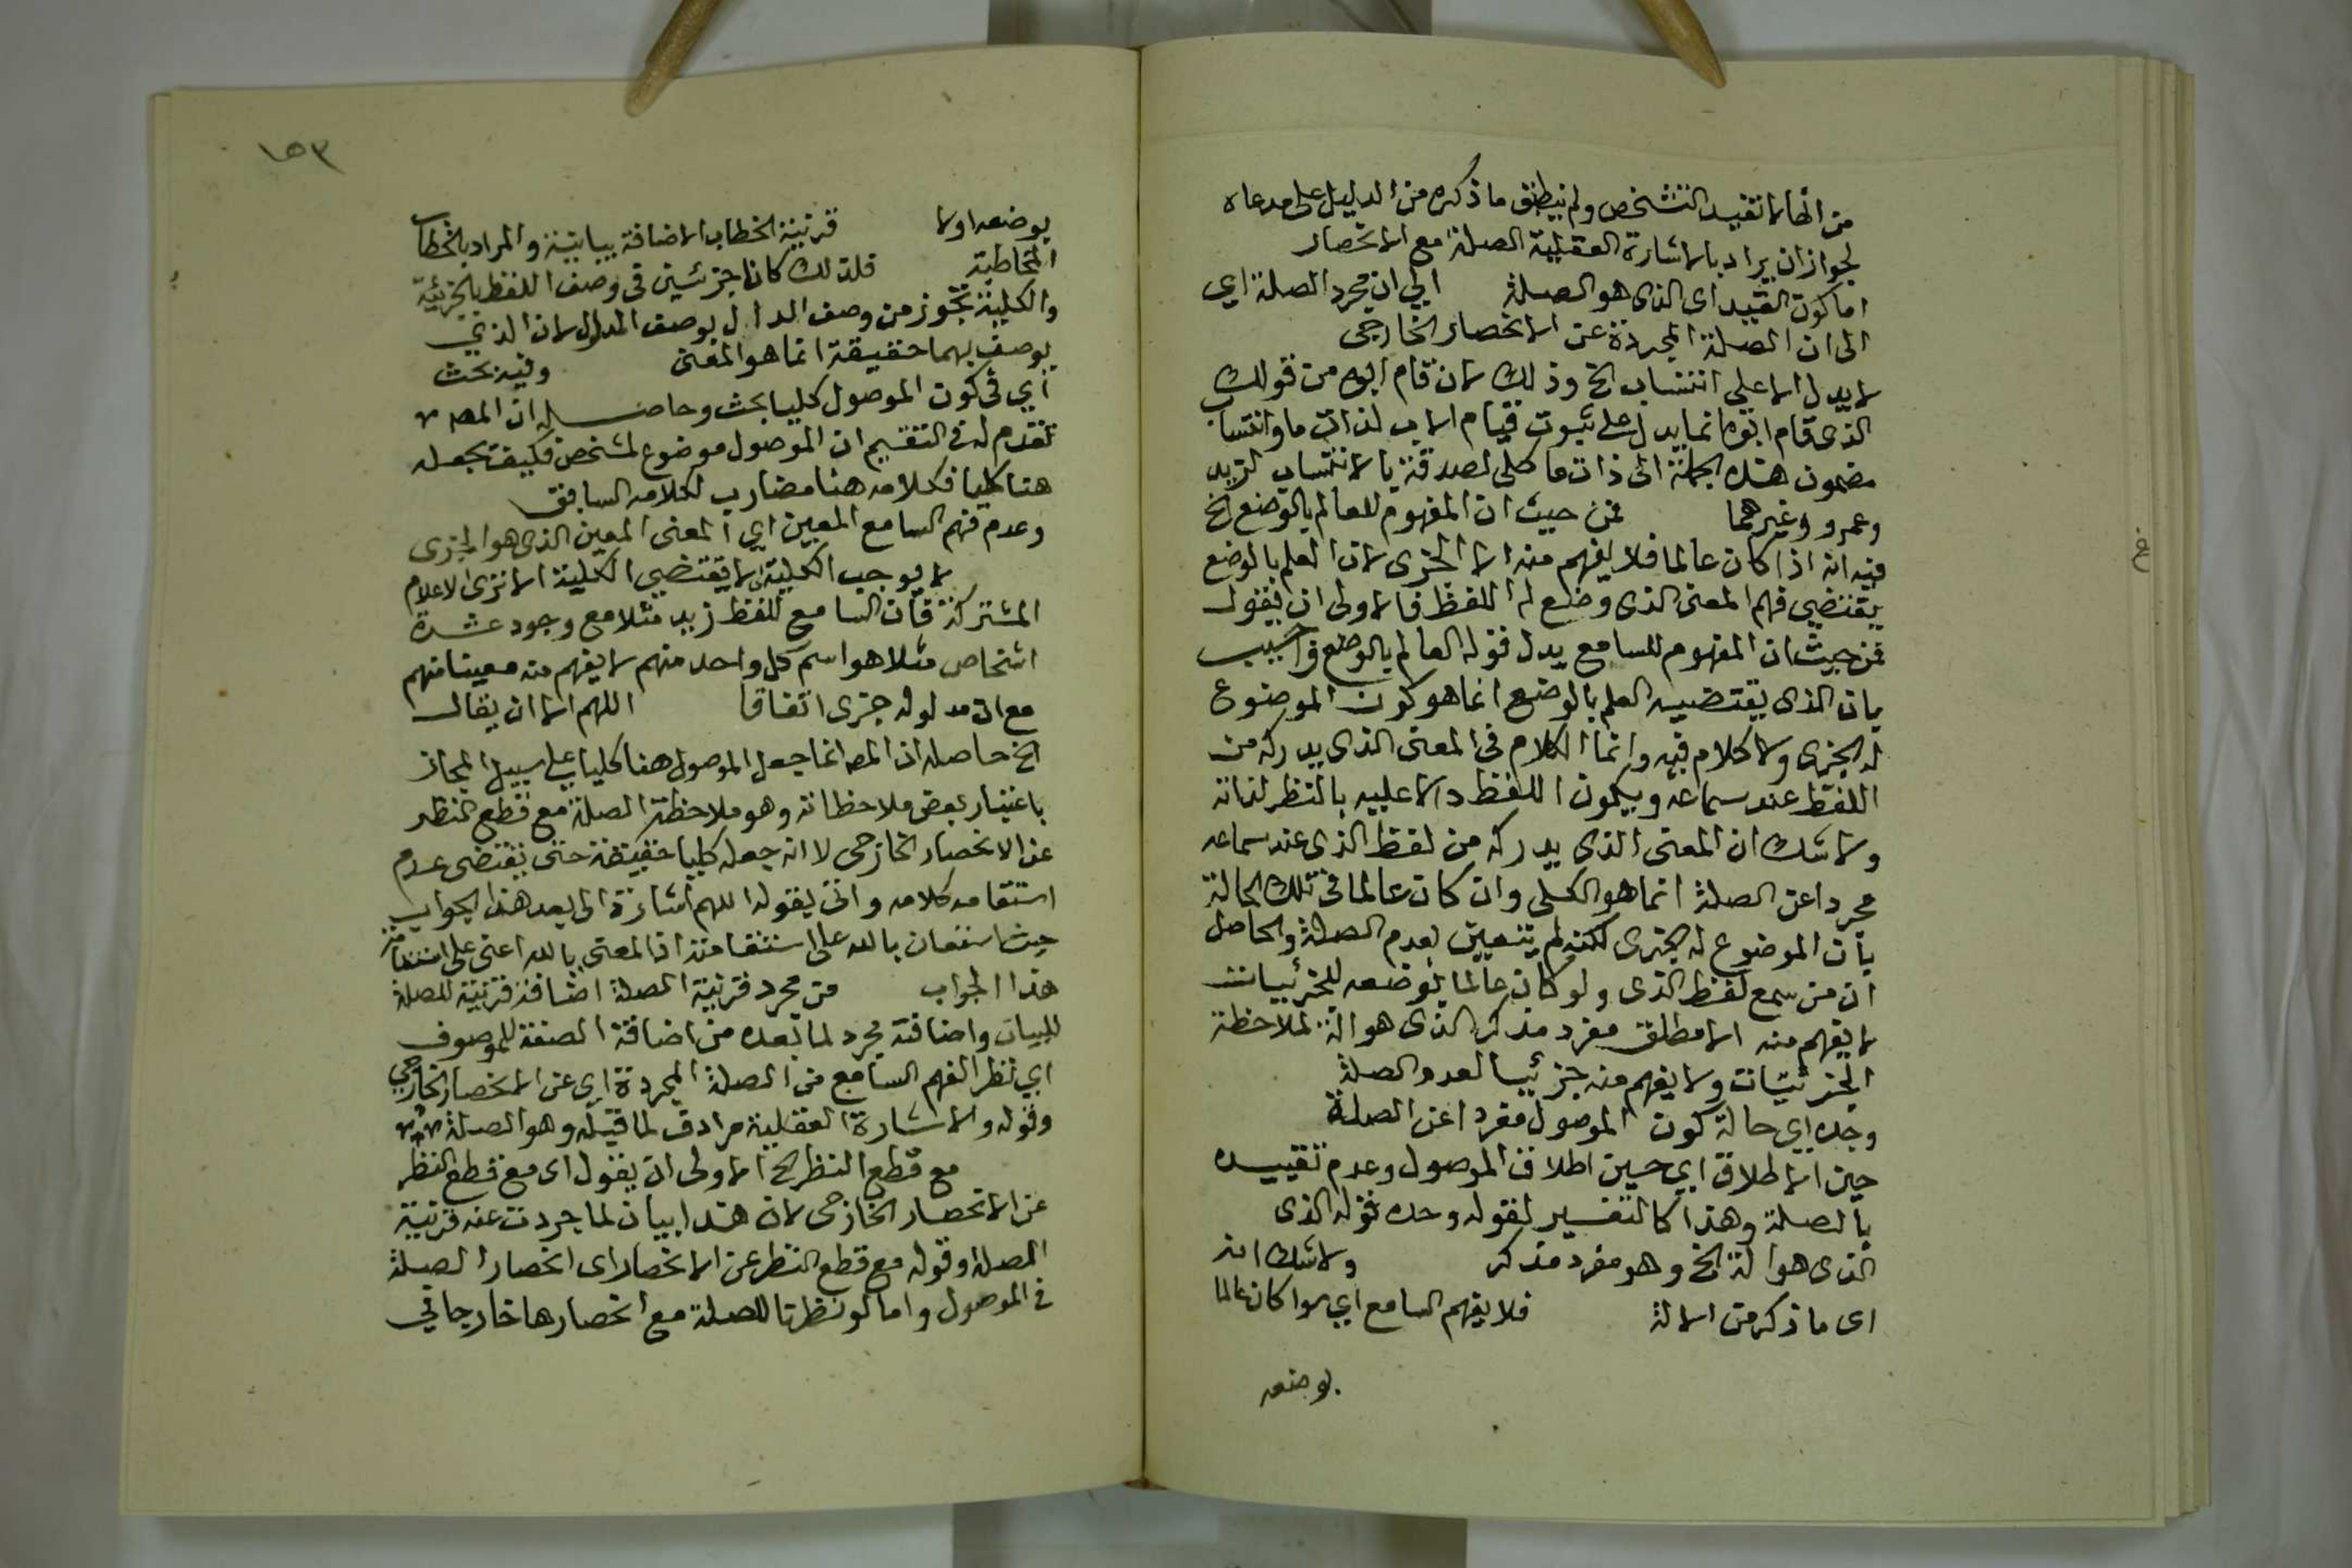 من انها لا تفيد التشخص ولم ينطبق ما ذكره من الدليل على مدعاه
لجواز ان يراد بالاشارة العقلية الصلة مع الانحصار
اما كون القيد اى الذى هو الصلة الي ان مجرد الصلة اي
الى ان الصلة المجردة عن الانحصار الخارجى
لا يدل الا على انتساب الخ وذلك لان قام ابوه من قولك
الذى قام ابوه انما يدل على ثبوت قيام الاب لذات ما وانتساب
مضمون هذه الجملة الى ذات ما كلى لصدقه بالانتساب لزيد
وعمرو وغيرهما فمن حيث ان المفهوم للعالم بالوضع الخ
فيه انه اذا كان عالما فلا يفهم منه الا الجزى لان العلم بالوضع
يقتضي فهم المعنى الذى وضع له اللفظ فالاولى ان يقول
فمن حيث ان المفهوم للسامع بدل قوله العالم بالوضع واجيب
بان الذى يقتضيه العلم بالوضع انما هو كون الموضوع
له الجزى ولا كلام فيه وانما الكلام فى المعنى الذى يدركه من
اللفظ عند سماعه ويكون اللفظ دالا عليه بالنظر لذاته
ولا شك ان المعنى الذى يدركه من لفظ الذى عند سماعه
مجردا عن الصلة انما هو الكلى وان كان عالما فى تلك الحالة
بان الموضوع له الجزى لكنه لم يتعين لعدم الصلة والحاصل
ان من سمع لفظ الذى ولو كان عالما بوضعه للجزئيات
لا يفهم منه الا مطلق مفرد مذكر الذى هو الة لملاحظة
الجزئيات ولا يفهم منه جزئيا لعدم الصلة
وحده اي حالة كون الموصول مفردا عن الصلة
حين الاطلاق اي حين اطلاق الموصول وعدم تقييده
بالصلة وهذا كالتفسير لقوله وحده قوله الذى
الذى هو الة الخ وهو مفرد مذكر ولا شك انه
اى ما ذكر من الالة فلا يفهم السامع اي سوا كان عالما
بوضعه
١٥٣
بوضعه اولا قرينة الخطاب الاضافة بيانية والمراد بالخطاب
المخاطبة فلذلك كانا جزئيين فى وصف اللفظ بالجزئية
والكلية تجوز من وصف الدال بوصف المدلول لان الذي
يوصف بهما حقيقة انما هو المعنى وفيه بحث
أي فى كون الموصول كليا بحث وحاصله ان المصـ
تقدم له فى التقسيم ان الموصول موضوع لمشخص فكيف يجعله
هنا كليا فكلامه هنا مضارب لكلامه السابق
وعدم فهم السامع المعين اي المعنى المعين الذى هو الجزى
لا يوجب الكلية اى لا يقتضي الكلية الا ترى الاعلام
المشتركة فان السامع للفظ زيد مثلا مع وجود عشرة
اشخاص مثلا هو اسم كل واحد منهم لا يفهم منه معينا منهم
مع ان مدلوله جزى اتفاقا اللهم الا ان يقال
الخ حاصله ان المصـ انما جعل الموصول هنا كليا على سبيل المجاز
باعتبار بعض ملاحظاته وهو ملاحظة الصلة مع قطع النظر
عن الانحصار الخارجى لا انه جعله كليا حقيقة حتى يقتضى عدم
استقامه كلامه واتى بقوله اللهم اشارة الى بعد هذا الجواب
حيث استعان بالله على استقامته اذ المعنى يا الله اعنى على استقامة
هذا الجواب من مجرد قرينة الصلة اضافة قرينة للصلة
للبيان واضافة مجرد لما بعده من اضافة الصفة للموصوف
اي نظر الفهم السامع من الصلة المجردة اي عن الانحصار الخارجي
وقوله والاشارة العقلية مرادف لما قبله وهو الصلة
مع قطع النظر الخ الاولى ان يقول اى مع قطع النظر
عن الانحصار الخارجى لان هذا بيان لما جردت عنه قرينة
الصلة وقوله مع قطع النظر عن الانحصار اى انحصار الصلة
فى الموصول واما لو نظرنا للصلة مع انحصارها خارجا في